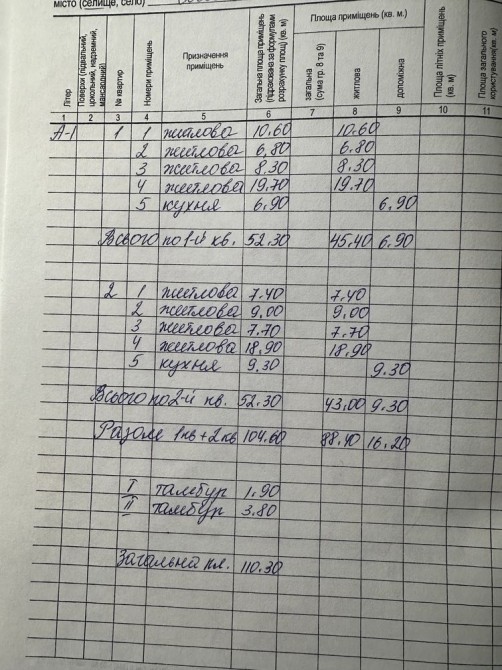 місто (селище, село)
Літер | Поверхи (підвальний, цокольний, надземний, мансардний) | № квартир | Номери приміщень | Призначення приміщень | Загальна площа приміщень (підрахована за формулами розрахунку площ) (кв. м) | Площа приміщень (кв. м.) | загальна (сума гр. 8 та 9) | житлова | допоміжна | Площа літніх приміщень (кв. м) | Площа загального користування (кв. м)
1 2 3 4 5 6 7 8 9 10 11
А-І 1 1 житлова 10.60 10.60
2 житлова 6.80 6.80
3 житлова 8.30 8.30
4 житлова 19.70 19.70
5 кухня 6.90 6.90
Всього по 1-й кв. 52.30 45.40 6.90
2 1 житлова 7.40 7.40
2 житлова 9.00 9.00
3 житлова 7.70 7.70
4 житлова 18.90 18.90
5 кухня 9.30 9.30
Всього по 2-й кв. 52.30 43.00 9.30
Разом 1кв+2кв 104.60 88.40 16.20
І тамбур 1.90
ІІ тамбур 3.80
Загальна пл. 110.30